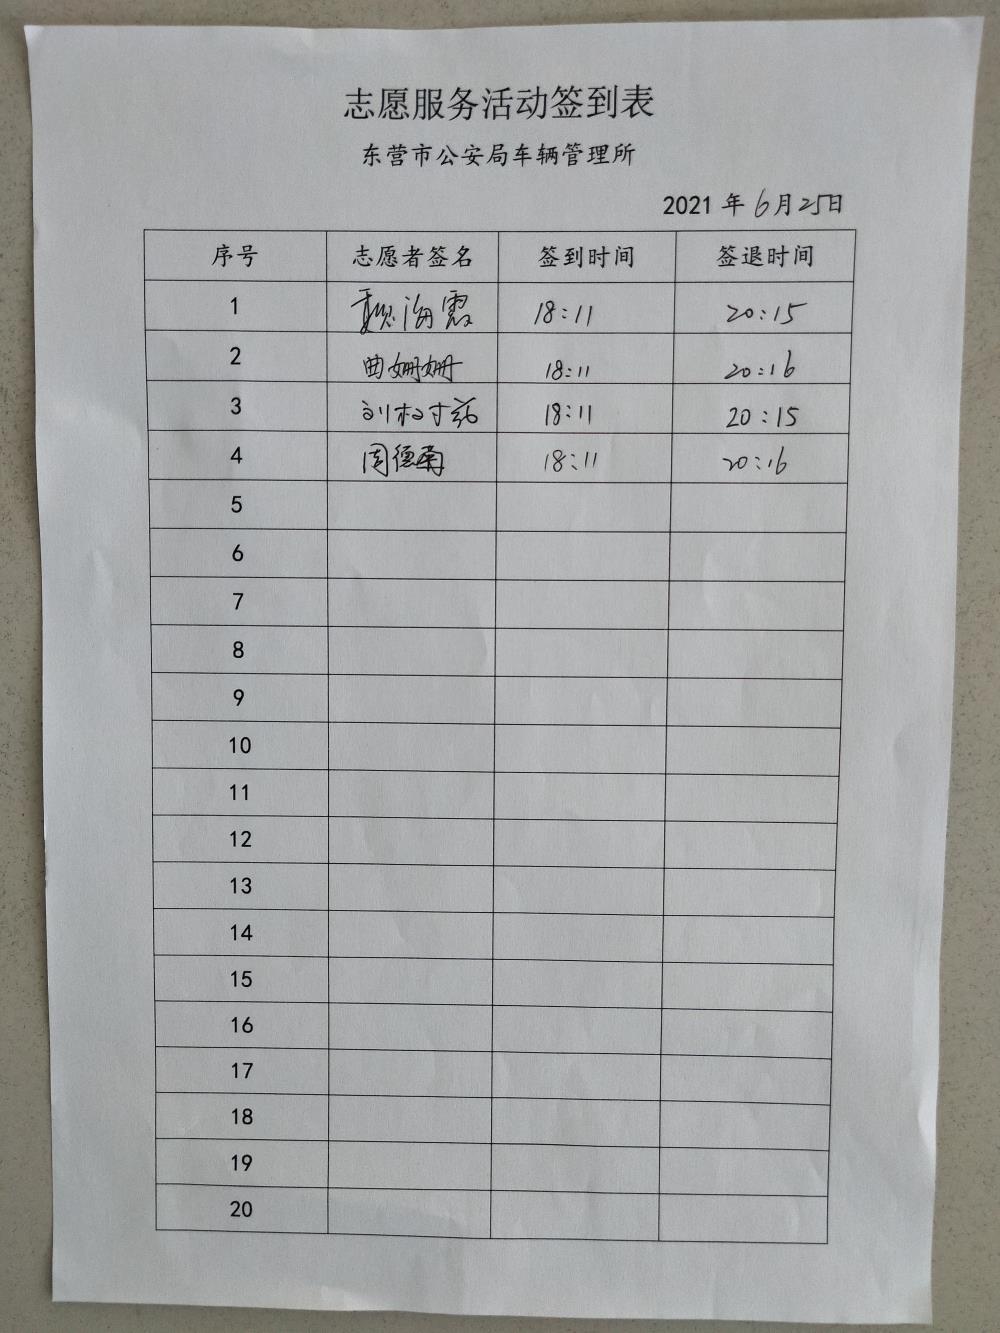 志愿服务活动签到表
东营市公安局车辆管理所
2021 年 6月25日
序号 志愿者签名 签到时间 签退时间
1 海霞 18:11 20:15
2 曲姗姗 18:11 20:16
3 刘树 18:11 20:15
4 周德南 18:11 20:16
5
6
7
8
9
10
11
12
13
14
15
16
17
18
19
20